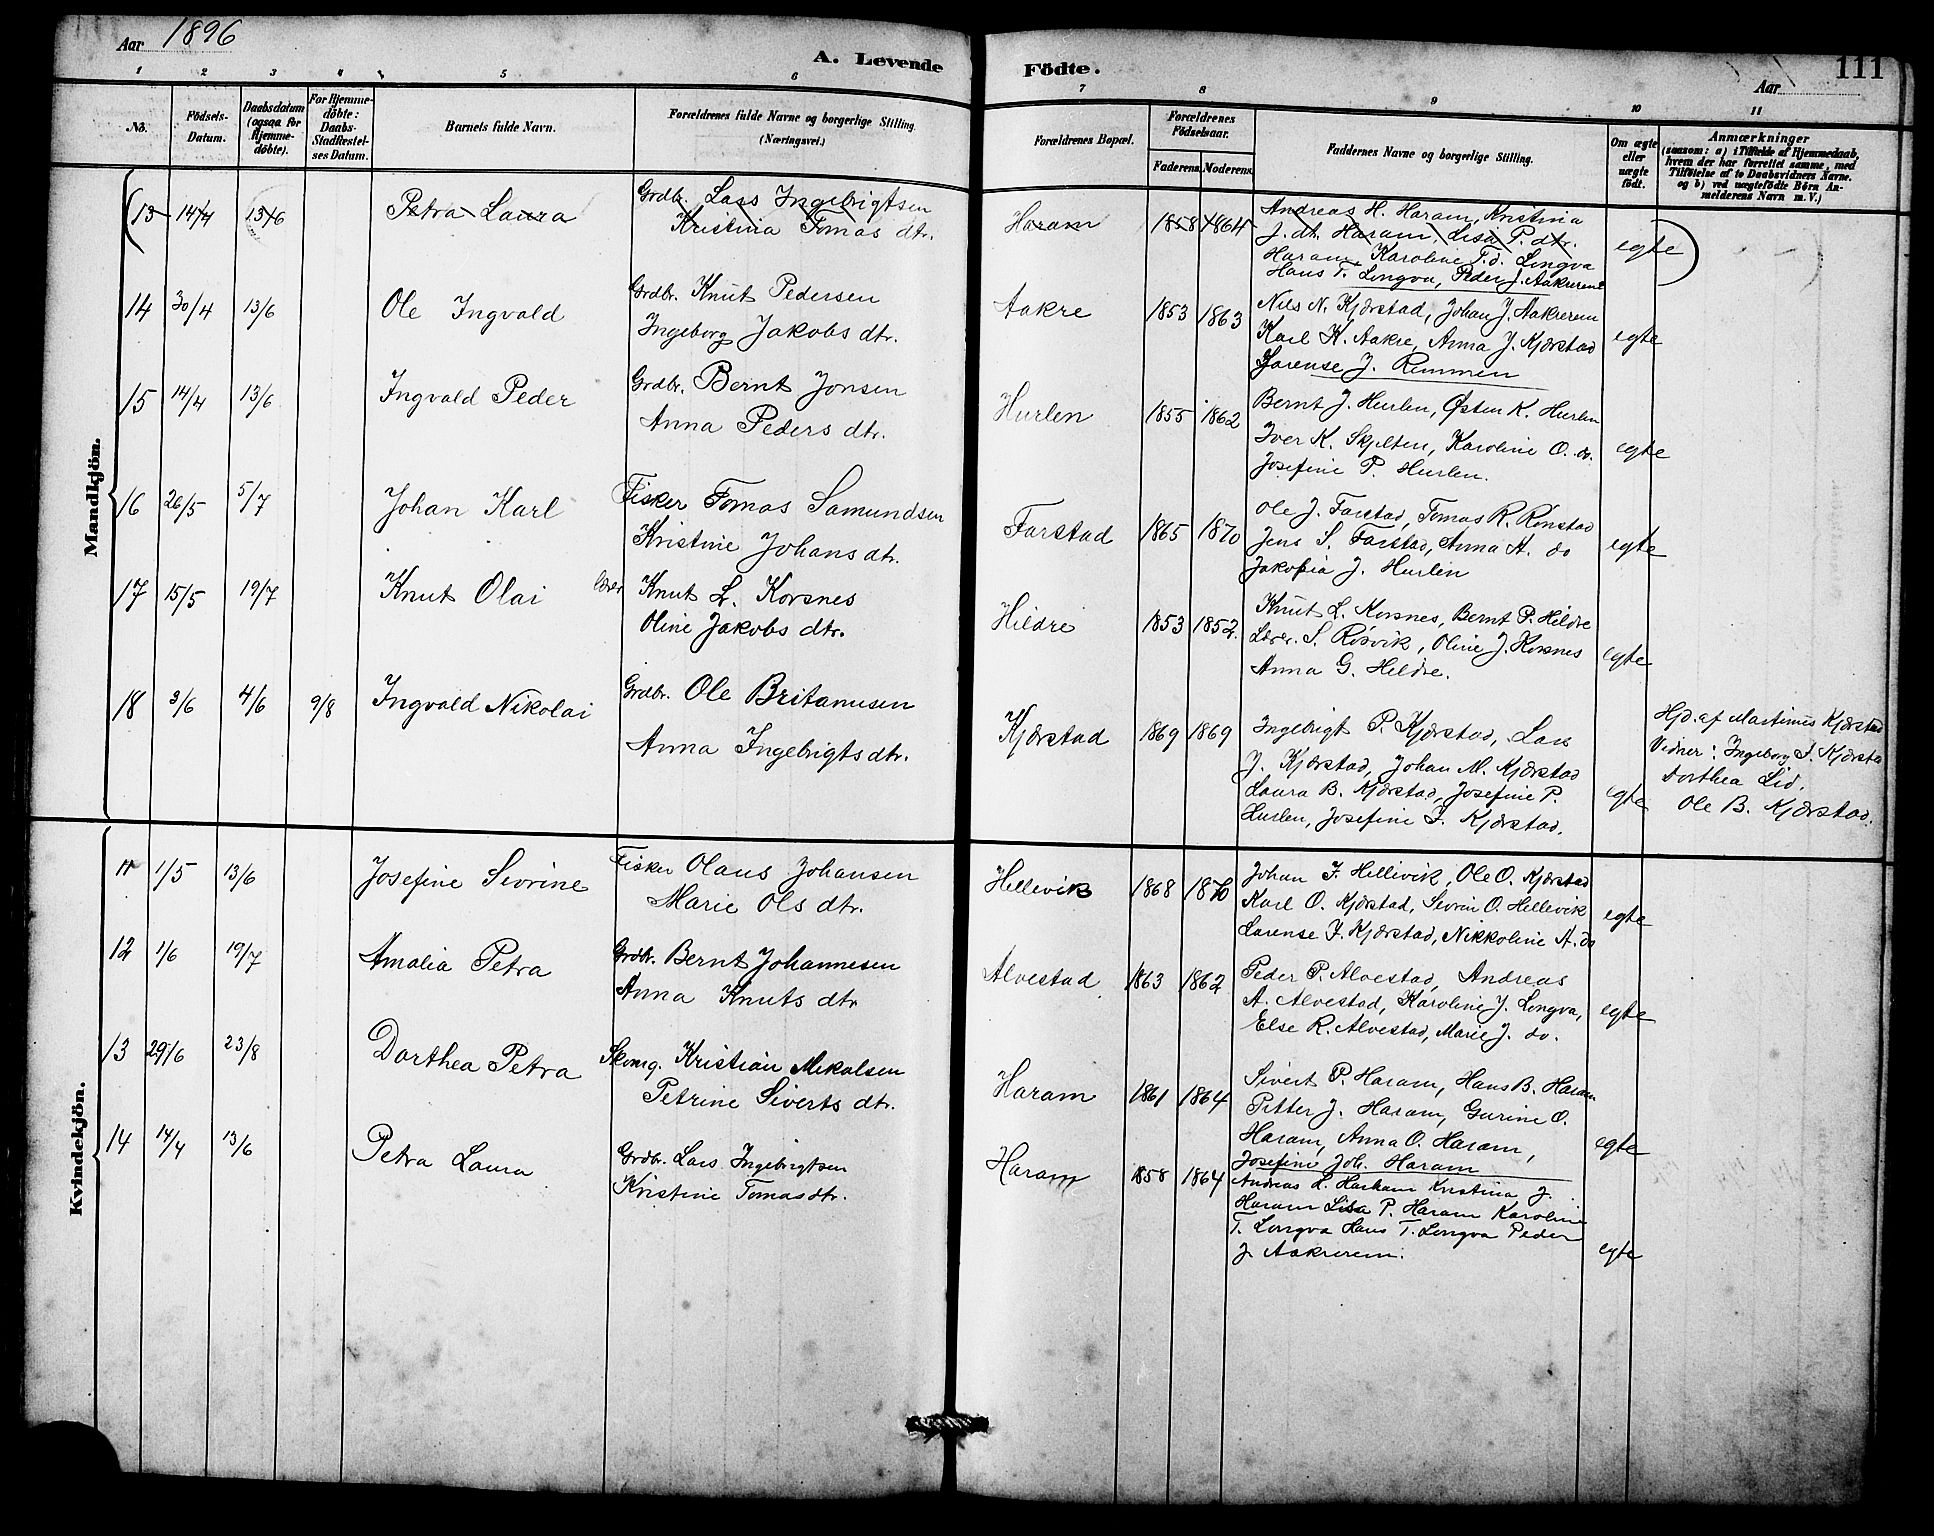 Aar 1896
A. Levende Födte.
Aar
111
1 2 3 4 5 6 7 8 9 10 11
No.
Födsels-Datum.
Daabsdatum (ogsaa for Hjemme-döbte).
For Hjemme-döbte: Daabs-Stadfæstel-ses Datum.
Barnets fulde Navn.
Forældrenes fulde Navne og borgerlige Stilling. (Næringsvei.)
Forældrenes Bopæl.
Forældrenes Födselsaar.
Faderens Moderens
Faddernes Navne og borgerlige Stilling.
Om ægte eller uægte födt.
Anmærkninger
(saasom: a) i Tilfælde af Hjemmedaab,
hvem der har forrettet samme, med
Tilföielse af to Daabsvidners Navne.
og b) ved uægtefödte Börn An-
melderens Navn m. V.)
Mandkjön.
13 14/4 13/6 Petra Laura Grdbr. Lars Ingebrigtsen
Kristina Tomas dtr.
Haram 1858 1864
Andreas H. Haram, Kristina
J. dt. Haram, Lisa P. dtr.
Haram, Karoline T. d. Longva
Hans T. Longva, Peder J. Aakrerem
egte
14 30/4 13/6 Ole Ingvald Grdbr. Knut Pedersen
Ingeborg Jakobs dtr.
Aakre 1853 1863
Nils N. Kjærstad, Johan J. Aakrerem
Karl K. Aakre, Anna J. Kjærstad
Larense J. Remmen
egte
15 14/4 13/6 Ingvald Peder Grdbr. Bernt Jonsen
Anna Peders dtr.
Hurlen 1855 1862
Bernt J. Hurlen, Østen K. Hurlen
Iver K. Skjelten, Karoline O. do.
Josefine P. Hurlen.
egte
16 26/5 5/7 Johan Karl Fisker Tomas Samundsen
Kristine Johans dtr.
Farstad 1865 1870
Ole J. Farstad, Tomas R. Rønstad
Jens S. Farstad, Anna A. do
Jakobia J. Hurlen
egte
17 15/5 19/7 Knut Olai Lærer Knut L. Korsnes
Oline Jakobs dtr.
Hildre 1853 1852.
Knut L. Korsnes, Bernt P. Hildre
Lærer. S. Røsvik, Oline J. Korsnes
Anna G. Hildre.
egte
18 3/6 4/6 9/8 Ingvald Nikolai Grdbr. Ole Britanusen
Anna Ingebrigts dtr.
Kjærstad 1869 1869
Ingebrigt P. Kjærstad, Lars
J. Kjærstad, Johan M. Kjærstad
Laura B. Kjærstad, Josefine P.
Hurlen, Josefine I. Kjærstad.
egte
Hjd. af Martinus Kjærstad
Vidner: Ingeborg I. Kjærstad
Dorthea Lid.
Ole B. Kjærstad.
Kvindekjön.
11 1/5 13/6 Josefine Sevrine Fisker Olaus Johansen
Marie Ols dtr.
Hellevik 1868 1870
Johan I. Hellivik, Ole O. Kjærstad
Karl O. Kjærstad, Sevrin O. Hellevik
Larense I. Kjærstad, Nikkoline A. do
egte
12 1/6 19/7 Amalia Petra Grdbr. Bernt Johannesen
Anna Knuts dtr
Alvestad 1863 1862
Peder P. Alvestad, Andreas
A. Alvestad, Karoline J. Longva,
Else R. Alvestad, Marie J. do.
egte
13 29/6 23/8 Dorthea Petra Skomg. Kristian Mekalsen
Petrine Siverts dtr.
Haram 1861 1864
Sivert P. Haram, Hans B. Haram
Petter J. Haram, Gurine O.
Haram, Anna O. Haram,
Josefine Joh. Haram
egte
14 14/4 13/6 Petra Laura Grdbr. Lars Ingebrigtsen
Kristine Tomasdtr.
Haram 1858 1864
Andreas L. Harham Kristina J.
Haram Lisa P. Haram Karoline
T. Longva Hans T. Longva Peder
J. Aakrerem.
egte